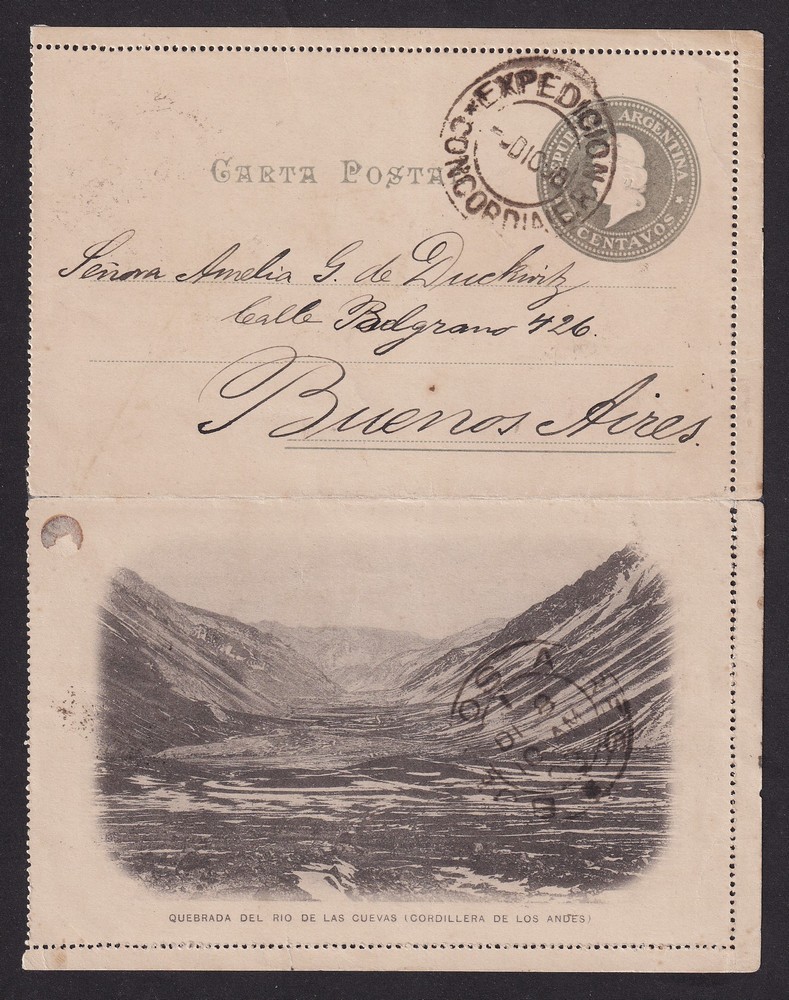 EXPEDICION
CONCORDIA
DIC
REPUBLICA ARGENTINA
CENTAVOS
CARTA POSTA
Señora Amelia G. de Duckwitz
Calle Belgrano 426.
Buenos Aires.
10 AM
QUEBRADA DEL RIO DE LAS CUEVAS (CORDILLERA DE LOS ANDES)